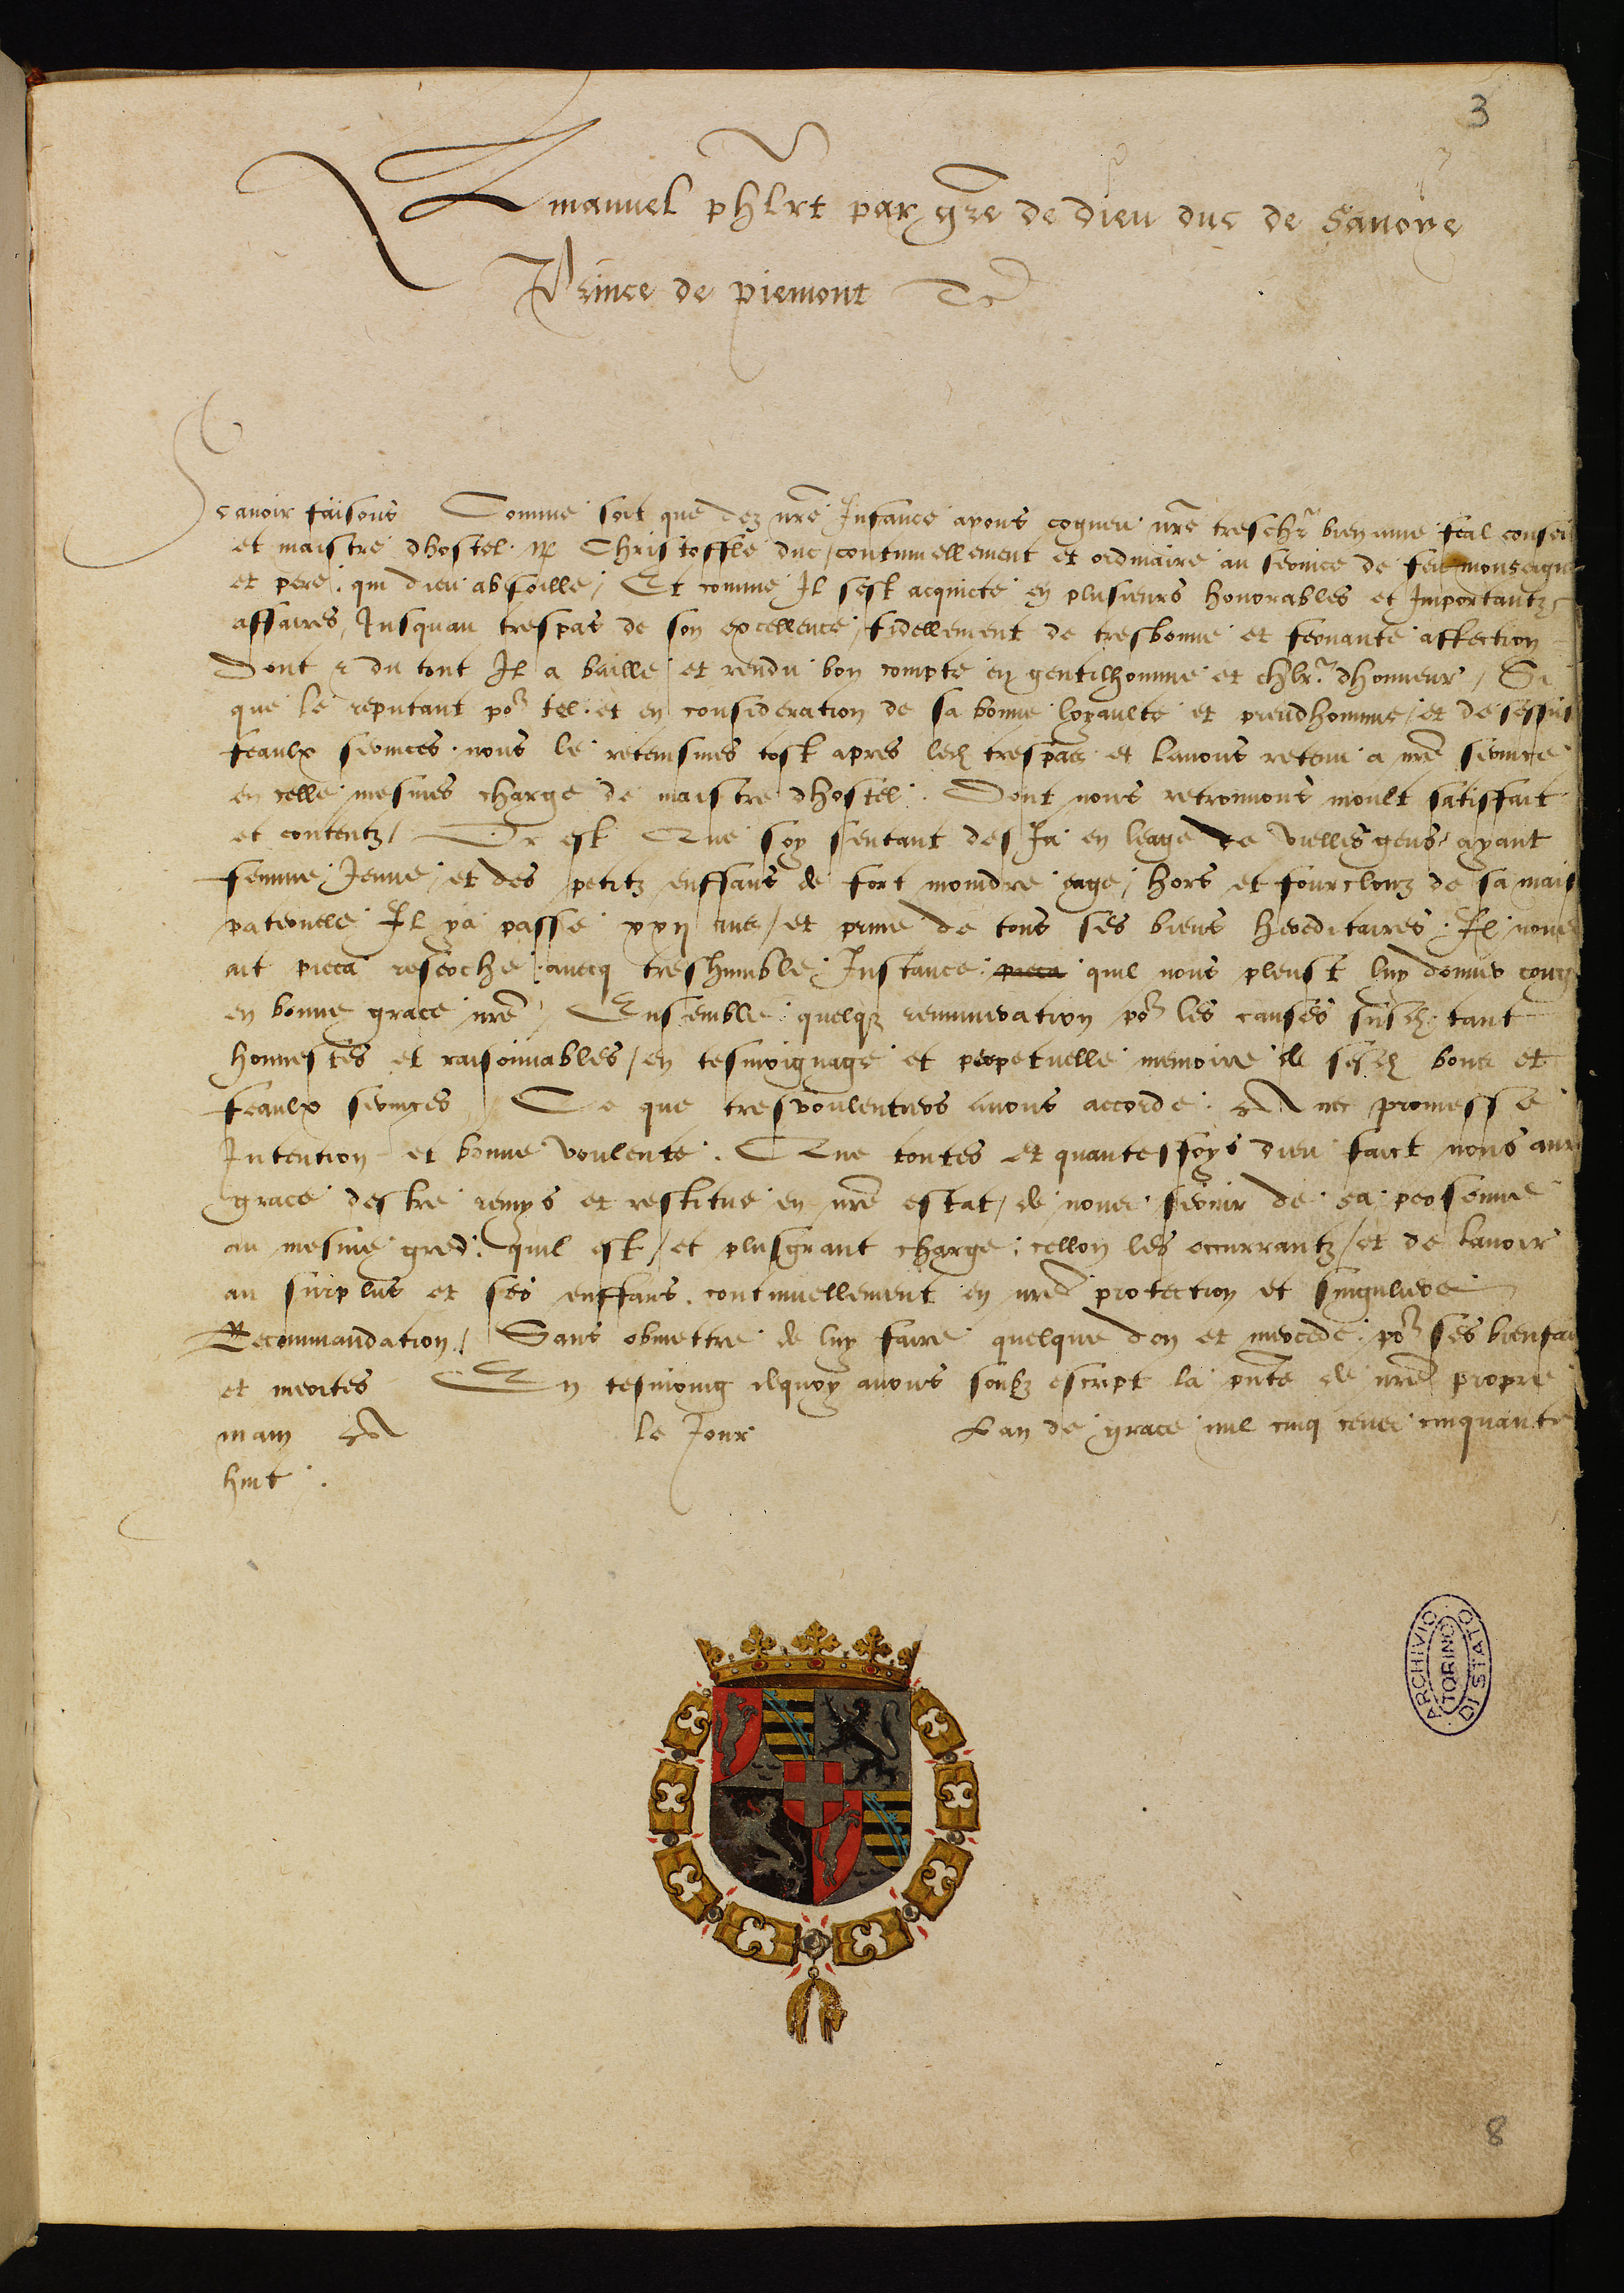 3
Emanuel phlrt par gre de dieu duc de Savoye
Prince de piemont
Scavoir faisons Comme soit que dez nre Infance ayons cogneu nre treschr bien ame feal consei
et maistre dhostel Christoffle duc / continuellement et ordinaire au service de feu monseigne
et pere. qui dieu absoille / Et comme Il sest acquicte en plusieurs honorables et Importantz
affaires / Jusquau trespas de son excellence / fidellement de tresbonne et fervante affection
Dont du tout Il a baille et rendu bon compte en gentilhomme et chlr. dhonneur / Si
que le reputant po tel. et en consideration de sa bonne loyaulte et preudhomme / et de
feaulx services. nous le retensmes tost apres led trespas et lavons retenu a nre service
en celle mesmes charge de maistre dhostel. Dont nous retrouvons moult satisfait
et contentz / Or est Que soy sentant des Ja en leage de viellesgens ayant
femme Jenne / et des petitz enffans de fort moindre eage / hors et fourclouz de sa mais
paternelle Il ya passe xxij ans / et prive de tous ses biens hereditaires. Il nous
ait pieca reserche avecq treshumble Instance pieca quil nous pleust luy donner cong
en bonne grace nre / Ensemble quelq remuneration po les causes susd. tant
honnestes et raisonnables / en tesmoignage et perpetuelle memoire de sesd bons et
feaulx services / Ce que tresvoulentiers avons accorde. Avec promesse
Intention et bonne voulente. Que toutes et quantesfoys dieu faict nous aur
grace destre remys et restitue en nre estat / de nous servir de sa personne
au mesme gred. quil est / et plusgrant charge. cellon les occurrantz / et de lavoir
au surplus et ses enffans. continuellement en nre protection et singuliere
Recommandation / Sans obmettre de luy faire quelque don et mercede. po ses bienfai
et merites En tesmoing dquoy avons soubz escript la pnte de nre propre
main A le Jour Lan de grace mil cinq cens cinquante
huit.
ARCHIVIO DI STATO
TORINO
8